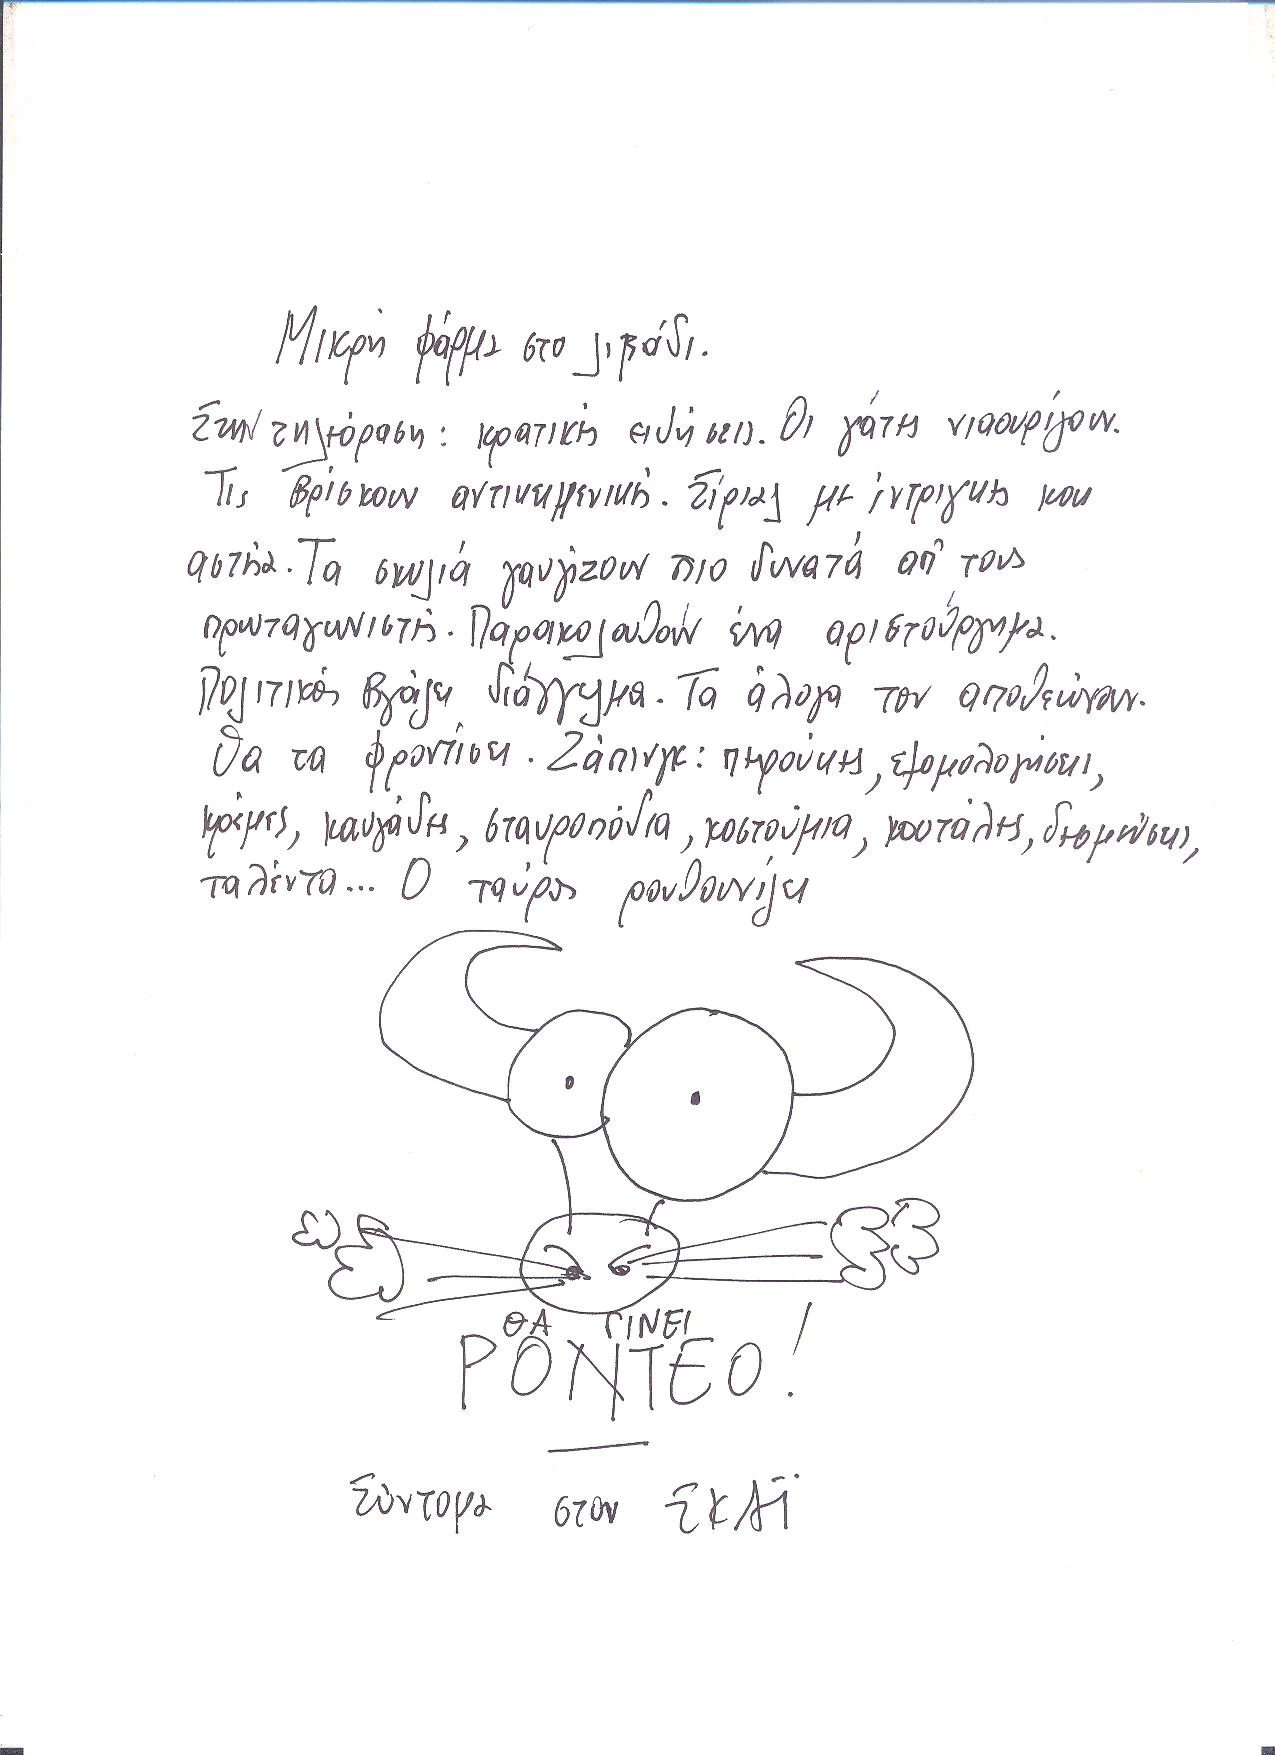 Μικρή φάρμα στο λιβάδι.
Στην τηλεόραση: κρατικές ειδήσεις. Οι γάτες νιαουρίζουν.
Τις βρίσκουν αντικειμενικές. Σίριαλ με ίντριγκες και
αστεία. Τα σκυλιά γαυγίζουν πιο δυνατά απ' τους
πρωταγωνιστές. Παρακολουθούν ένα αριστούργημα.
Πολιτικός βγάζει διάγγελμα. Τα άλογα τον αποθεώνουν.
Θα τα φροντίσει. Ζάπινγκ: περούκες, εξομολογήσεις,
κρέμες, καυγάδες, σταυροπόδια, κοστούμια, κουτάλες, δεσμεύσεις,
ταλέντα... Ο ταύρος ρουθουνίζει
ΘΑ ΓΙΝΕΙ
ΡΟΝΤΕΟ!
Σύντομα στον ΣΚΑΪ